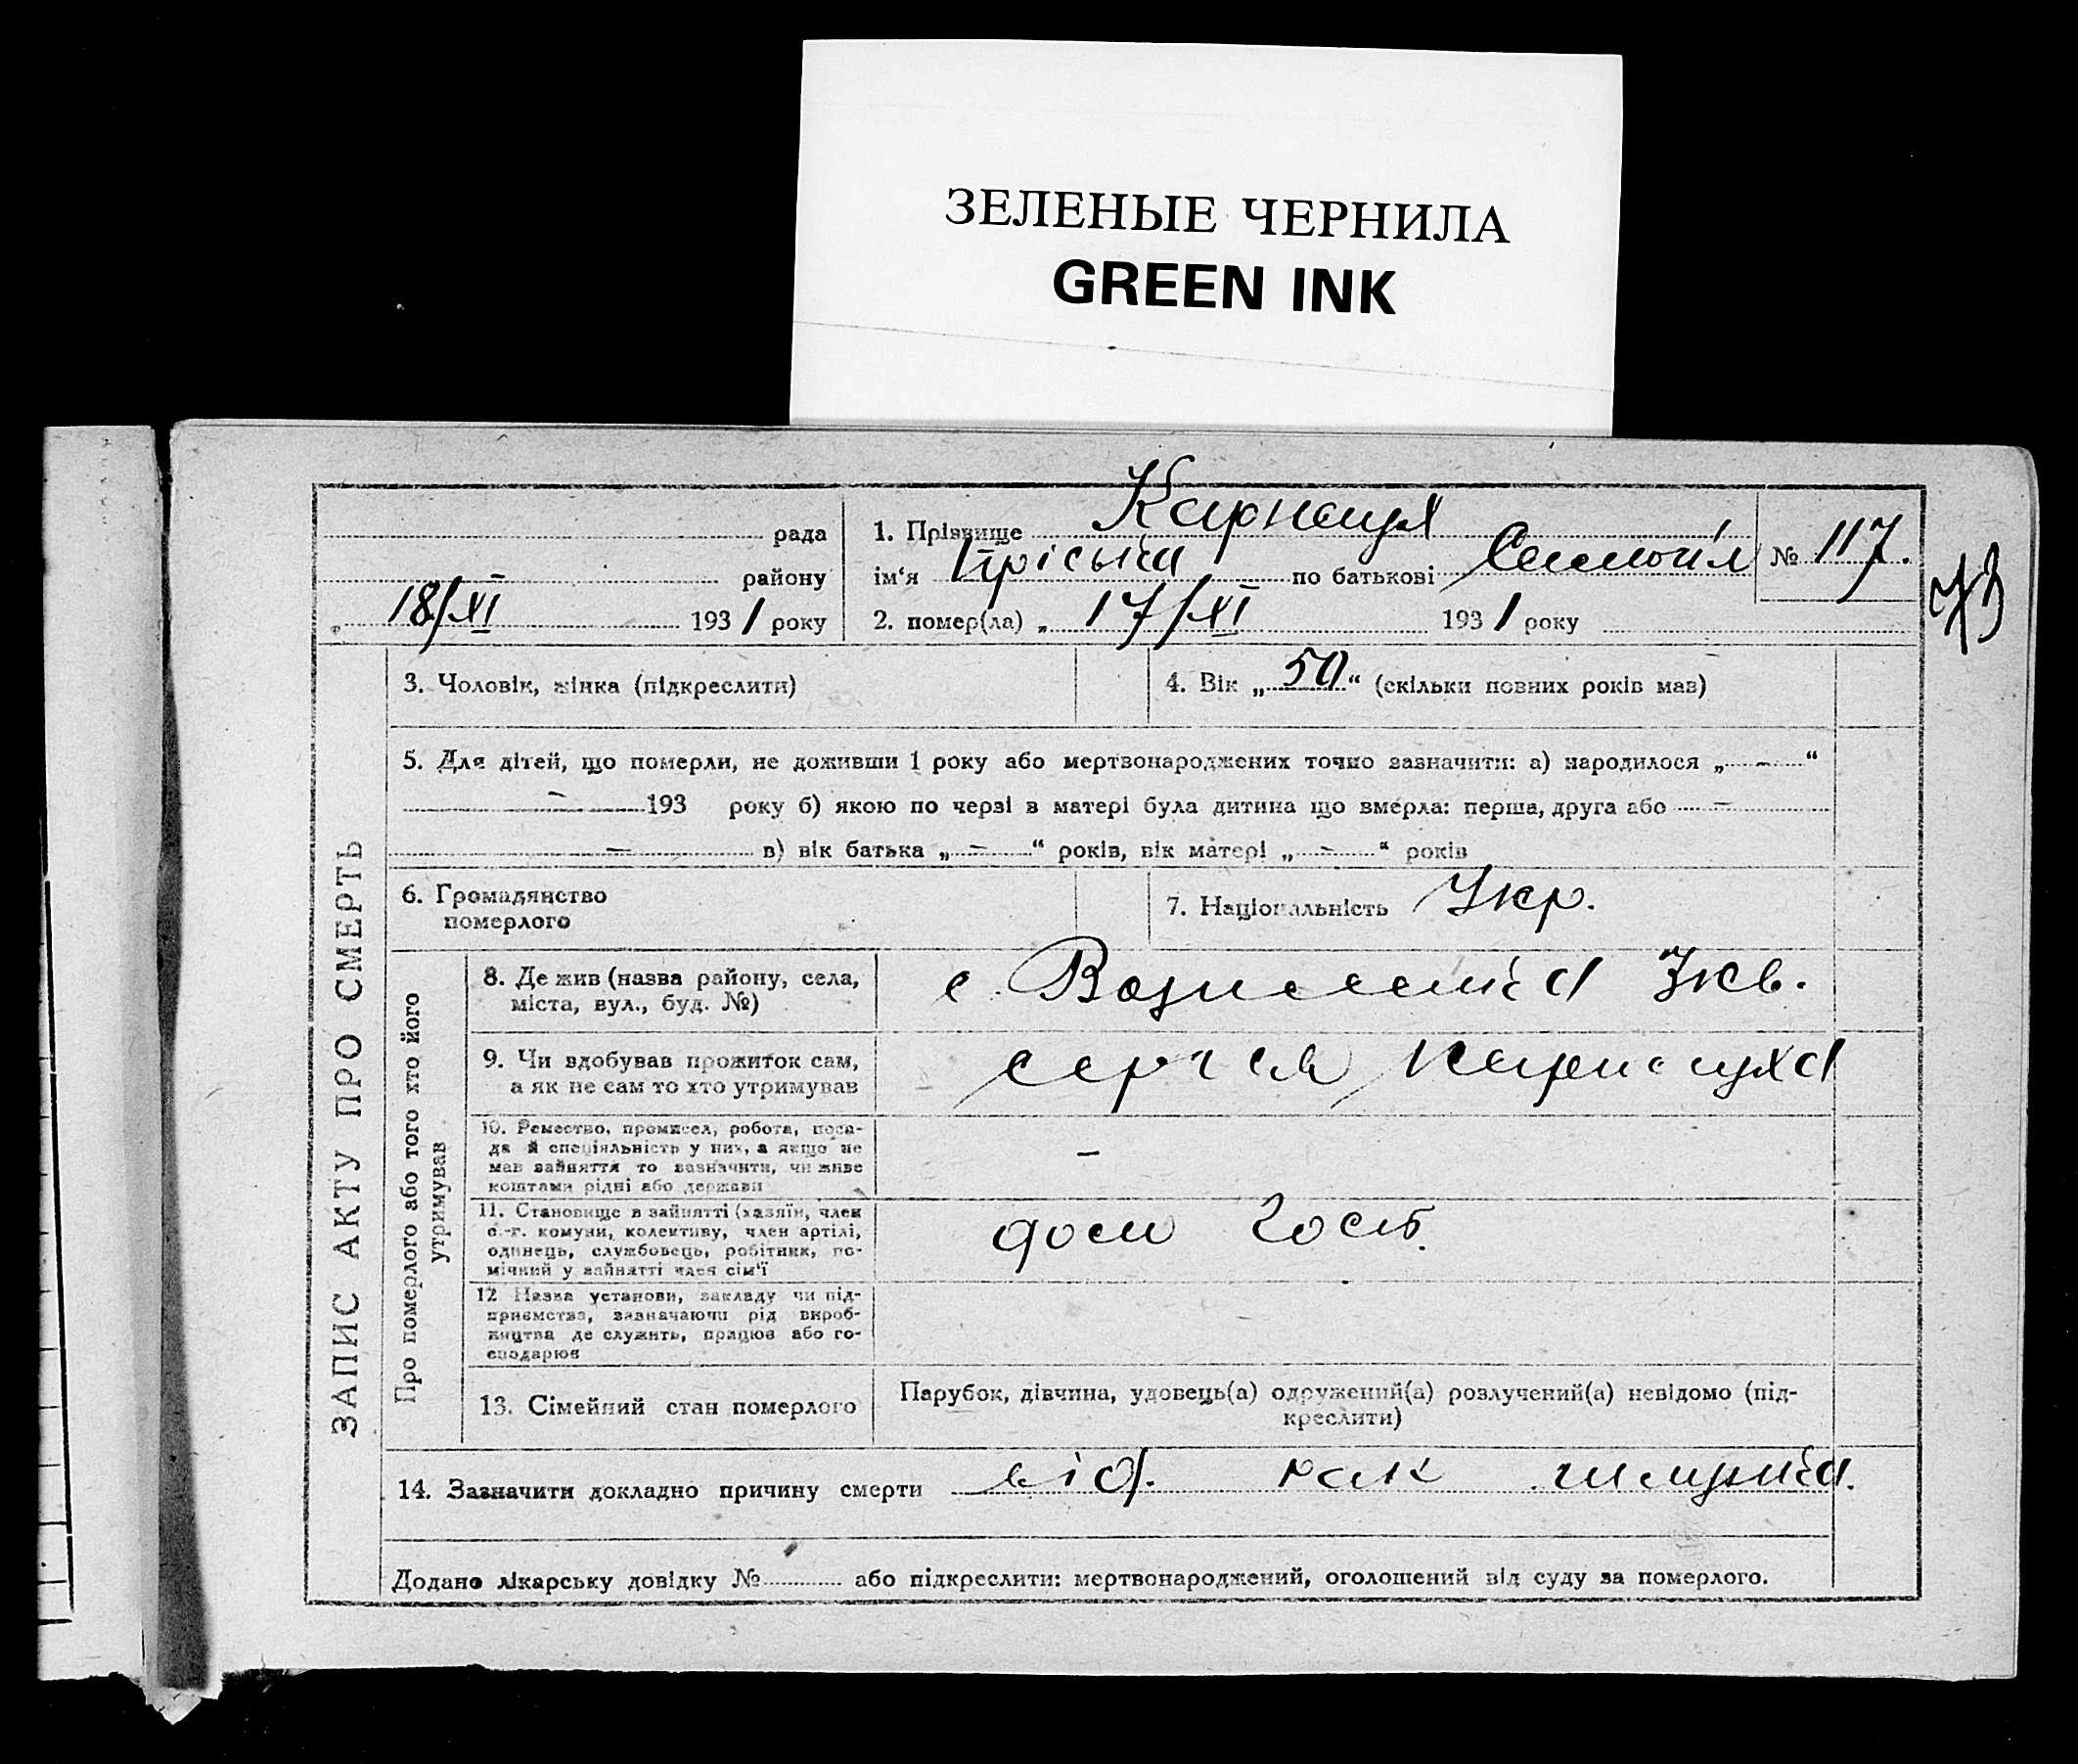 ЗЕЛЕНЫЕ ЧЕРНИЛА
GREEN INK
рада
району
18/XI 1931 року
1. Прізвище Карнаух
ім‘я Пріська по батькові Самойл
№ 117.
73
2. помер(ла) „ 17/XI 1931 року
ЗАПИС АКТУ ПРО СМЕРТЬ
3. Чоловік, жінка (підкреслити)
4. Вік „50“ (скільки повних років мав)
5. Для дітей, що померли, не доживши 1 року або мертвонароджених точно зазначити: а) народилося „ – “
– 193 року б) якою по черзі в матері була дитина що вмерла: перша, друга або –
– в) вік батька „ – “ років, вік матері „ – “ років
6. Громадянство
померлого
7. Національність Укр.
Про померлого або того хто його
утримував
8. Де жив (назва району, села,
міста, вул., буд. №)
с.
9. Чи здобував прожиток сам,
а як не сам то хто утримував
Сергій Карнауха
10. Ремество, промисел, робота, поса-
да й спеціяльність у них, а якщо не
мав зайняття то зазначити, чи живе
коштами рідні або держави
–
11. Становище в зайнятті (хазяїн, член
с.-г. комуни, колективу, член артілі,
одинець, службовець, робітник, по-
мічний у зайнятті член сім‘ї
дом госп.
12 Назва установи, закладу чи під-
приємства, зазначаючи рід вироб-
ництва де служить, працює або го-
сподарює
13. Сімейний стан померлого
Парубок, дівчина, удовець(а) одружений(а) розлучений(а) невідомо (під-
креслити)
14. Зазначити докладно причину смерти від. рак
Додано лікарську довідку № або підкреслити: мертвонароджений, оголошений від суду за померлого.